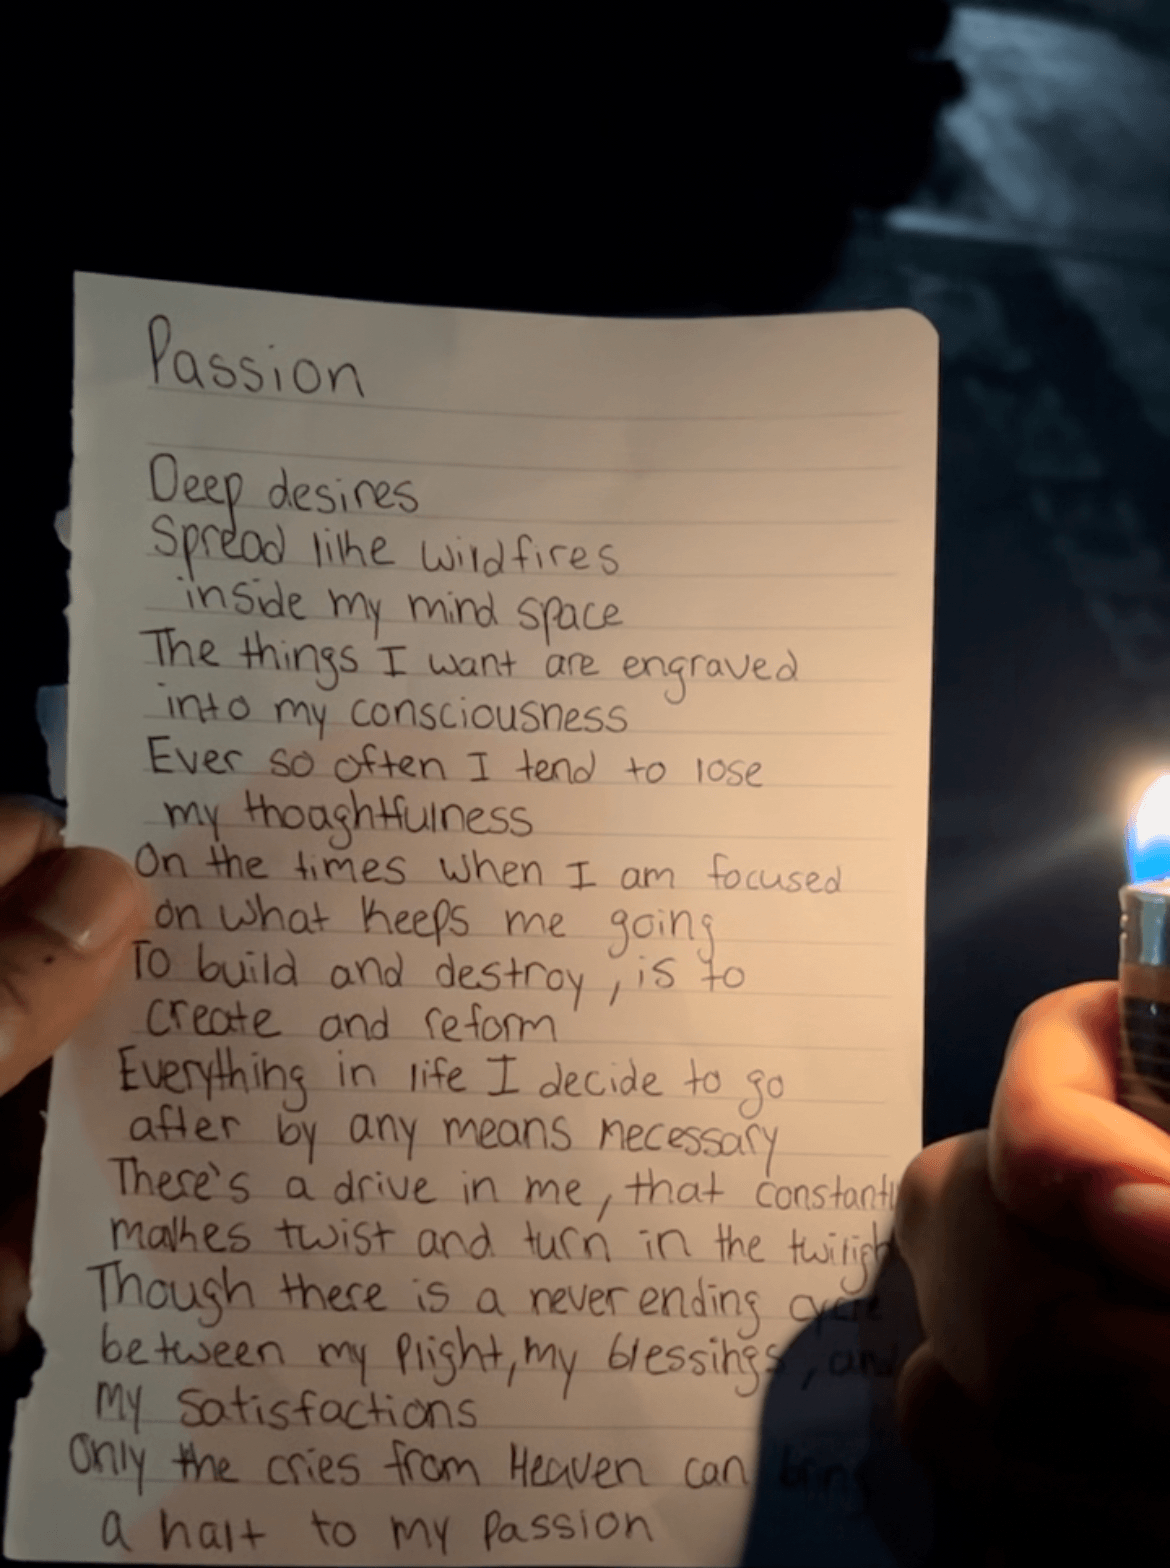 Passion
Deep desires
Spread like wildfires
inside my mind space
The things I want are engraved
into my consciousness
Ever so often I tend to lose
my thoaghtfulness
On the times when I am focused
on what keeps me going
To build and destroy, is to
create and reform
Everything in life I decide to go
after by any means necessary
There's a drive in me, that constantl
makes twist and turn in the twiligh
Though there is a never ending
between my plight, my blessings, and
my satisfactions
Only the cries from Heaven can bring
a halt to my passion